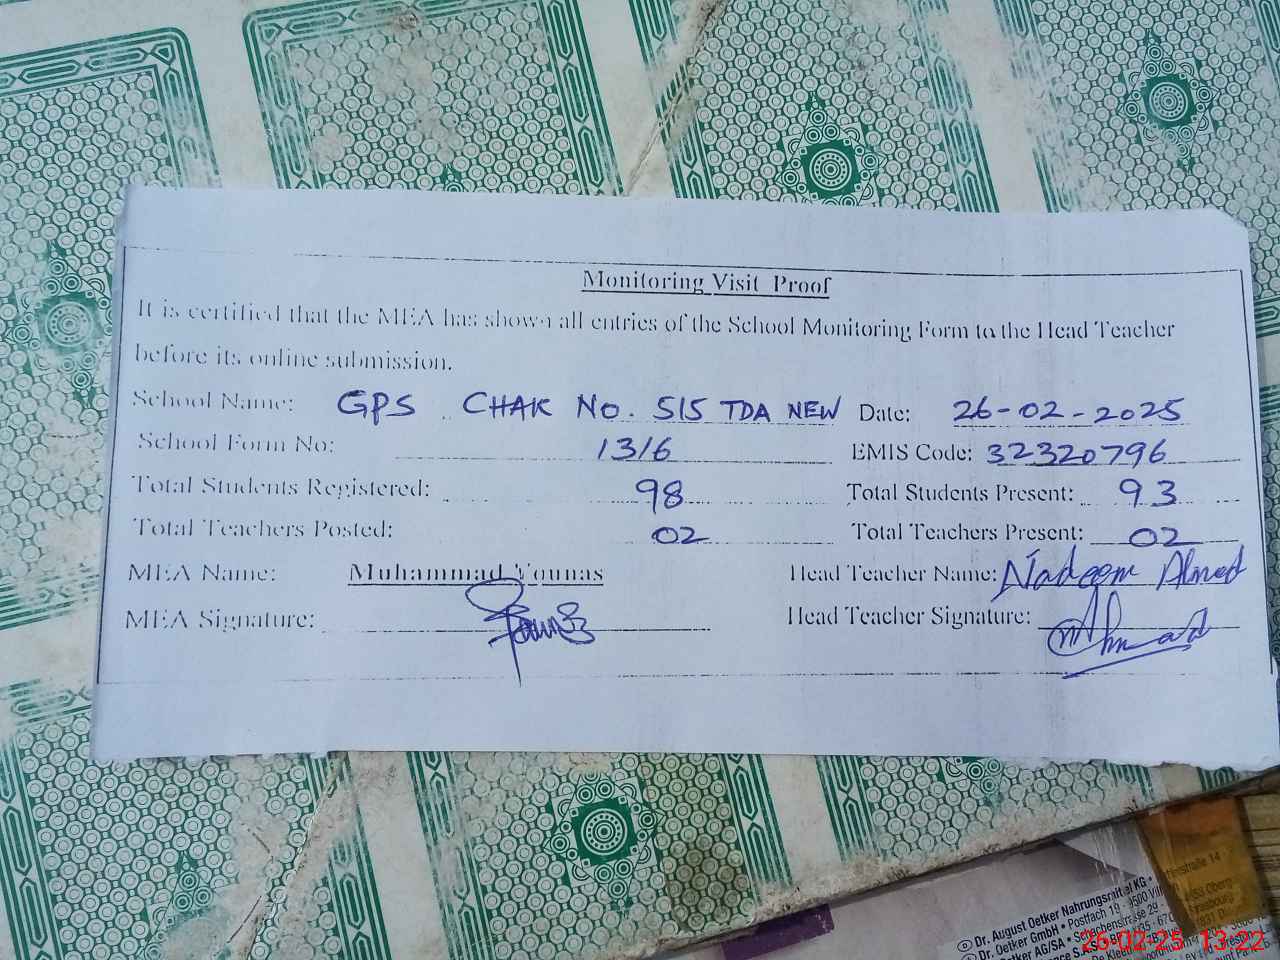 Monitoring Visit Proof
It is certified that the MEA has shown all entries of the School Monitoring Form to the Head Teacher
before its online submission.
School Name: GPS CHAK No. 515 TDA NEW Date: 26-02-2025
School Form No: 1316 EMIS Code: 32320796
Total Students Registered: 98 Total Students Present: 93
Total Teachers Posted: 02 Total Teachers Present: 02
MEA Name: Muhammad Younas Head Teacher Name: Nadeem Ahmed
MEA Signature: Head Teacher Signature:
Dr. August Oetker Nahrungsmittel KG •
Dr. Oetker GmbH • Postfach 19 - 9500
Oetker AG/SA •
26-02-25 13:22